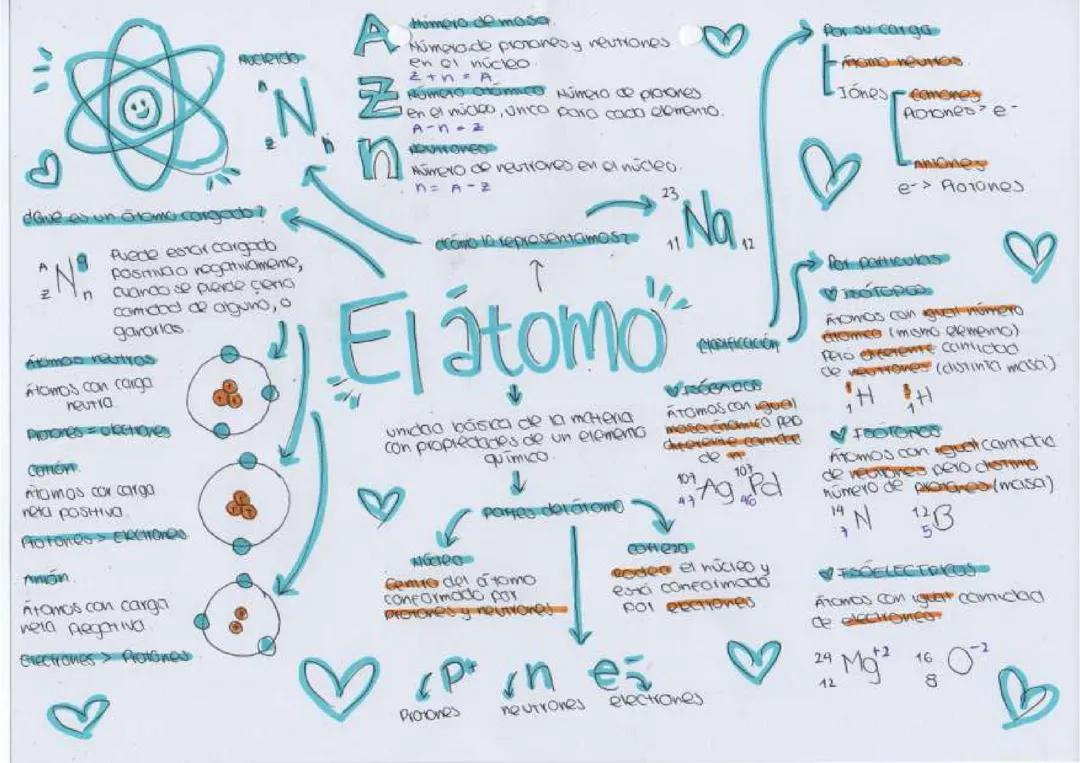 El átomo
Nucleido
A
N
Z n
A
Número de masa
Número de protones y neutrones
en el núcleo
Z + n = A
Z
Número atómico Número de protones
en el núcleo, único para cada elemento.
A - n = Z
n
neutrones
Número de neutrones en el núcleo.
n = A - Z
¿Cómo lo representamos?
23
Na
11 12
¿Qué es un átomo cargado?
A N q
Z n
Puede estar cargado
positiva o negativamente,
cuando se pierde cierta
cantidad de alguno, o
ganarlos.
Átomos neutros
Átomos con carga
neutra.
Protones = electrones
Catión
Átomos con carga
neta positiva.
Protones > Electrones
Anión.
Átomos con carga
neta negativa.
Electrones > Protones
unidad básica de la materia
con propiedades de un elemento
químico.
partes del átomo
Núcleo
Centro del átomo
conformado por
protones y neutrones
corteza
rodea el núcleo y
está conformado
por electrones
p+ n e-
Protones neutrones electrones
clasificación
Por su carga
Átomo neutros
Iónes
cationes
Protones > e-
Aniones
e- > Protones
Por partículas
ISÓTOPOS
Átomos con igual número
atómico (mismo elemento)
pero diferente cantidad
de neutrones (distinta masa)
1 H 1 H
ISÓTONOS
Átomos con igual cantidad
de neutrones pero distinto
número de protones (masa)
14 N 12 B
7 5
ISÓELECTRICOS
Átomos con igual cantidad
de electrones
24 Mg+2 16 O-2
12 8
ISÓBAROS
Átomos con igual
masa atómica pero
diferente cantidad
de n
107 Ag 107 Pd
47 46